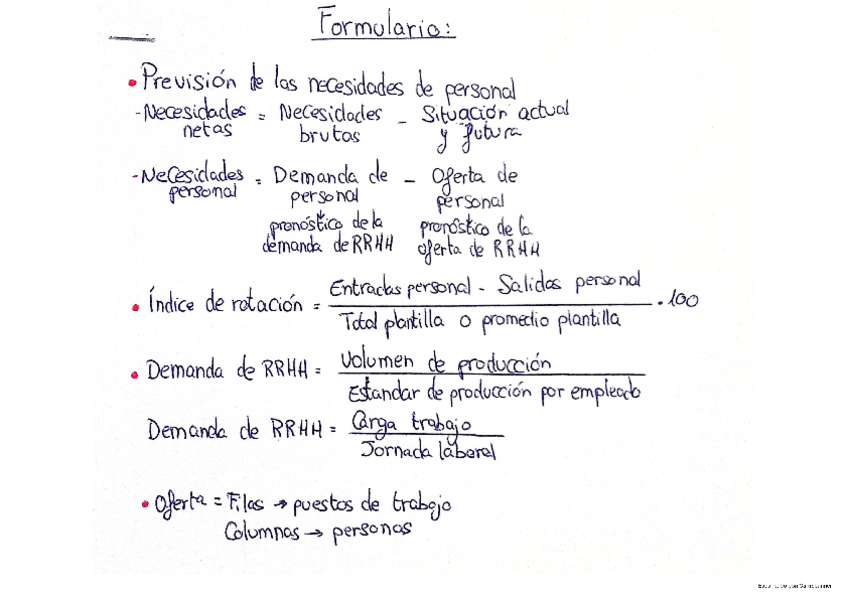 Formulario:
• Previsión de las necesidades de personal
- Necesidades netas = Necesidades brutas - Situación actual y futura
- Necesidades personal = Demanda de personal - Oferta de personal
pronóstico de la demanda de RRHH pronóstico de la oferta de RRHH
• Índice de rotación = Entradas personal - Salidas personal / Total plantilla o promedio plantilla . 100
• Demanda de RRHH = Volumen de producción / Estandar de producción por empleado
Demanda de RRHH = Carga trabajo / Jornada laboral
• Oferta = Filas → puestos de trabajo
Columnas → personas